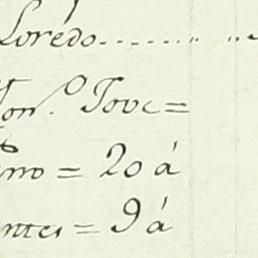 Lorédo........ ..
on.º Jove=
no = 20 á
ntes = 9 á